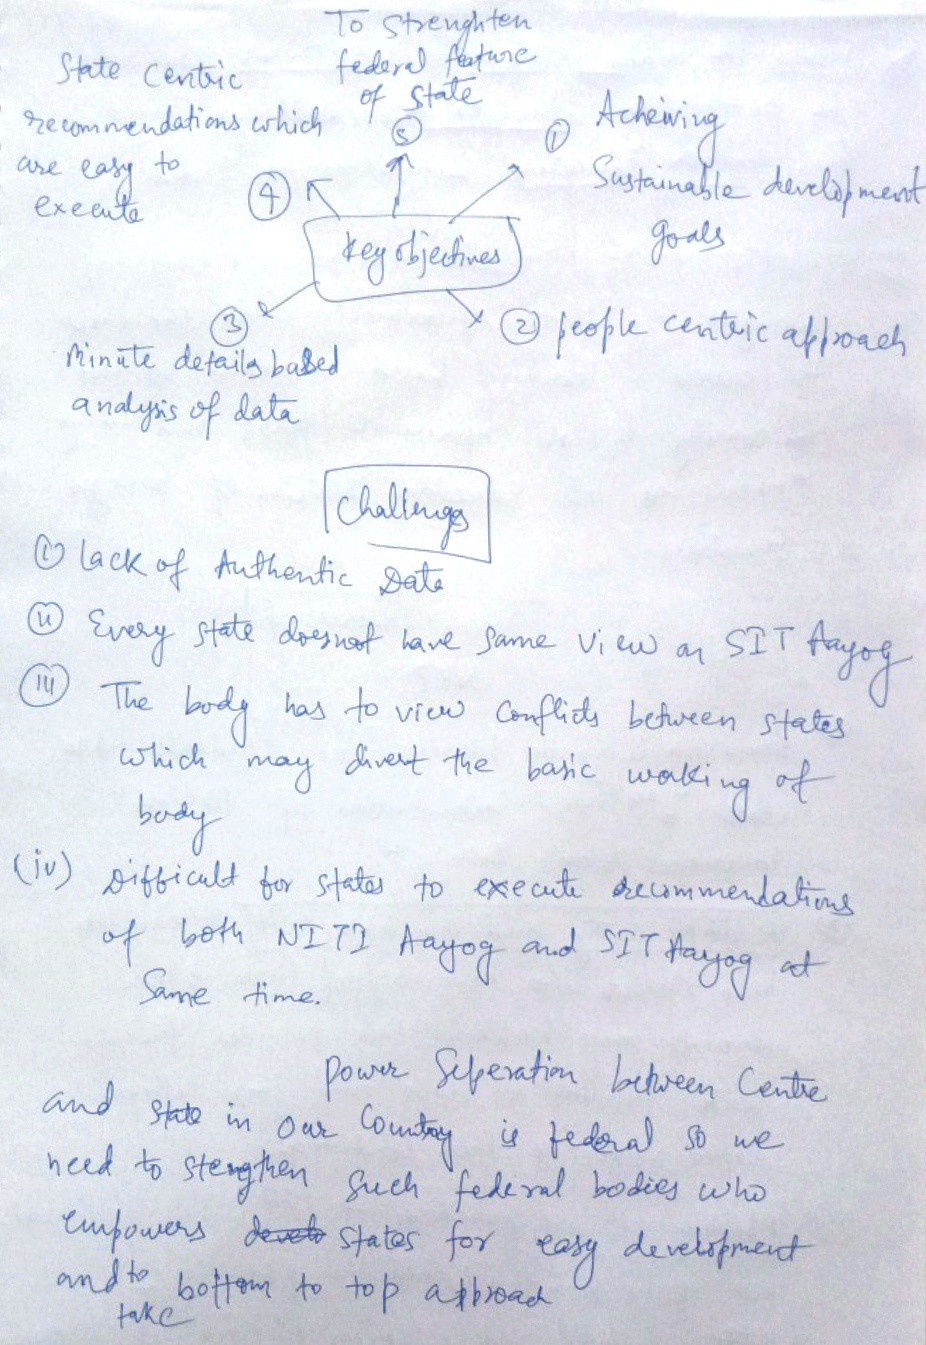 To strenghten
federal feature
of state
⑤
State Centric
recommendations which
are easy to
execute
④
① Acheiving
Sustainable development
goals
Key objectives
② people centric approach
③
Minute details based
analysis of data
Challenges
(i) Lack of Authentic Data
(ii) Every state doesnot have same view on SIT Aayog
(iii) The body has to view conflicts between states
which may divert the basic working of
body
(iv) Difficult for states to execute recommendations
of both NITI Aayog and SIT Aayog at
same time.
Power Seperation between Centre
and State in our Country is federal so we
need to stengthen such federal bodies who
empowers states for easy development
and to take bottom to top approach